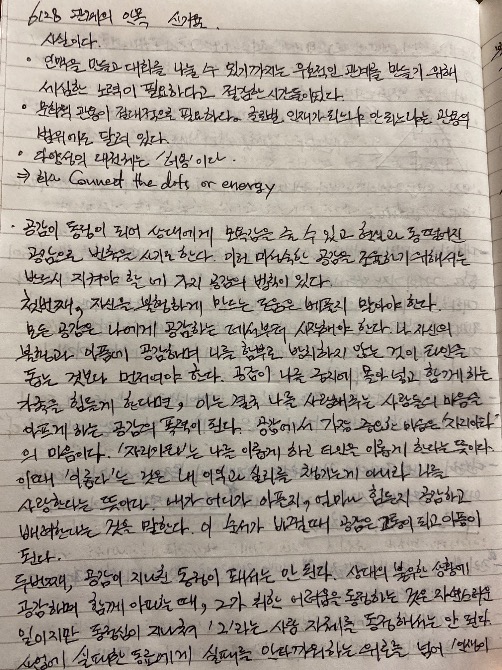 6/28 관계의 안목 신기율
사실이다.
· 인맥을 만들고 대화를 나눌 수 있기까지는 우호적인 관계를 만들기 위해
세심한 노력이 필요하다고 절감한 시간들이었다.
· 문화적 관용이 절대적으로 필요하다. 글로벌 인재가 되느냐 안 되느냐는 관용의
범위에도 달려 있다.
· 다양성의 대전제는 '허용'이다.
⇒ 회고 Connect the dots or energy
· 공감이 동정이 되어 상대에게 모욕감을 줄 수 있고 현실과 동떨어진
공감으로 변하는 시기도 한다. 이런 미성숙한 공감을 조율하기 위해서는
반드시 지켜야 할 네 가지 공감의 법칙이 있다.
첫번째, 자신을 불행하게 만드는 도움은 베풀지 말아야 한다.
모든 공감은 나에게 공감하는 데서부터 시작해야 한다. 나 자신의
불행과 아픔에 공감하며 나를 함부로 방치하지 않는 것이 타인을
돕는 것보다 먼저여야 한다. 공감이 나를 궁지에 몰아넣고 함께하는
가족을 힘들게 한다면, 이는 결국 나를 사랑해주는 사람들의 마음을
아프게 하는 공감의 폭력이 된다. 공감에서 가장 중요한 마음은 '자리이타'
의 마음이다. '자리이타'는 나를 이롭게 하고 타인을 이롭게 한다는 뜻이다.
이때 '이롭다'는 것은 내 이익과 실리를 챙기는게 아니라 나를
사랑한다는 뜻이다. 내가 어디가 아픈지, 얼마나 힘든지 공감하고
배려한다는 것을 말한다. 이 순서가 바뀔때 공감은 고통이 되고 아픔이
된다.
두번째, 공감이 지나친 동정이 돼서는 안 된다. 상대의 불우한 상황에
공감하며 함께 아파할 때, 그가 처한 어려움을 동정하는 것은 자연스러운
일이지만 동정심이 지나쳐 '그'라는 사람 자체를 동정해서는 안 된다.
사업에 실패한 동료에게 실패를 안타까워하는 위로를 넘어 '인생이